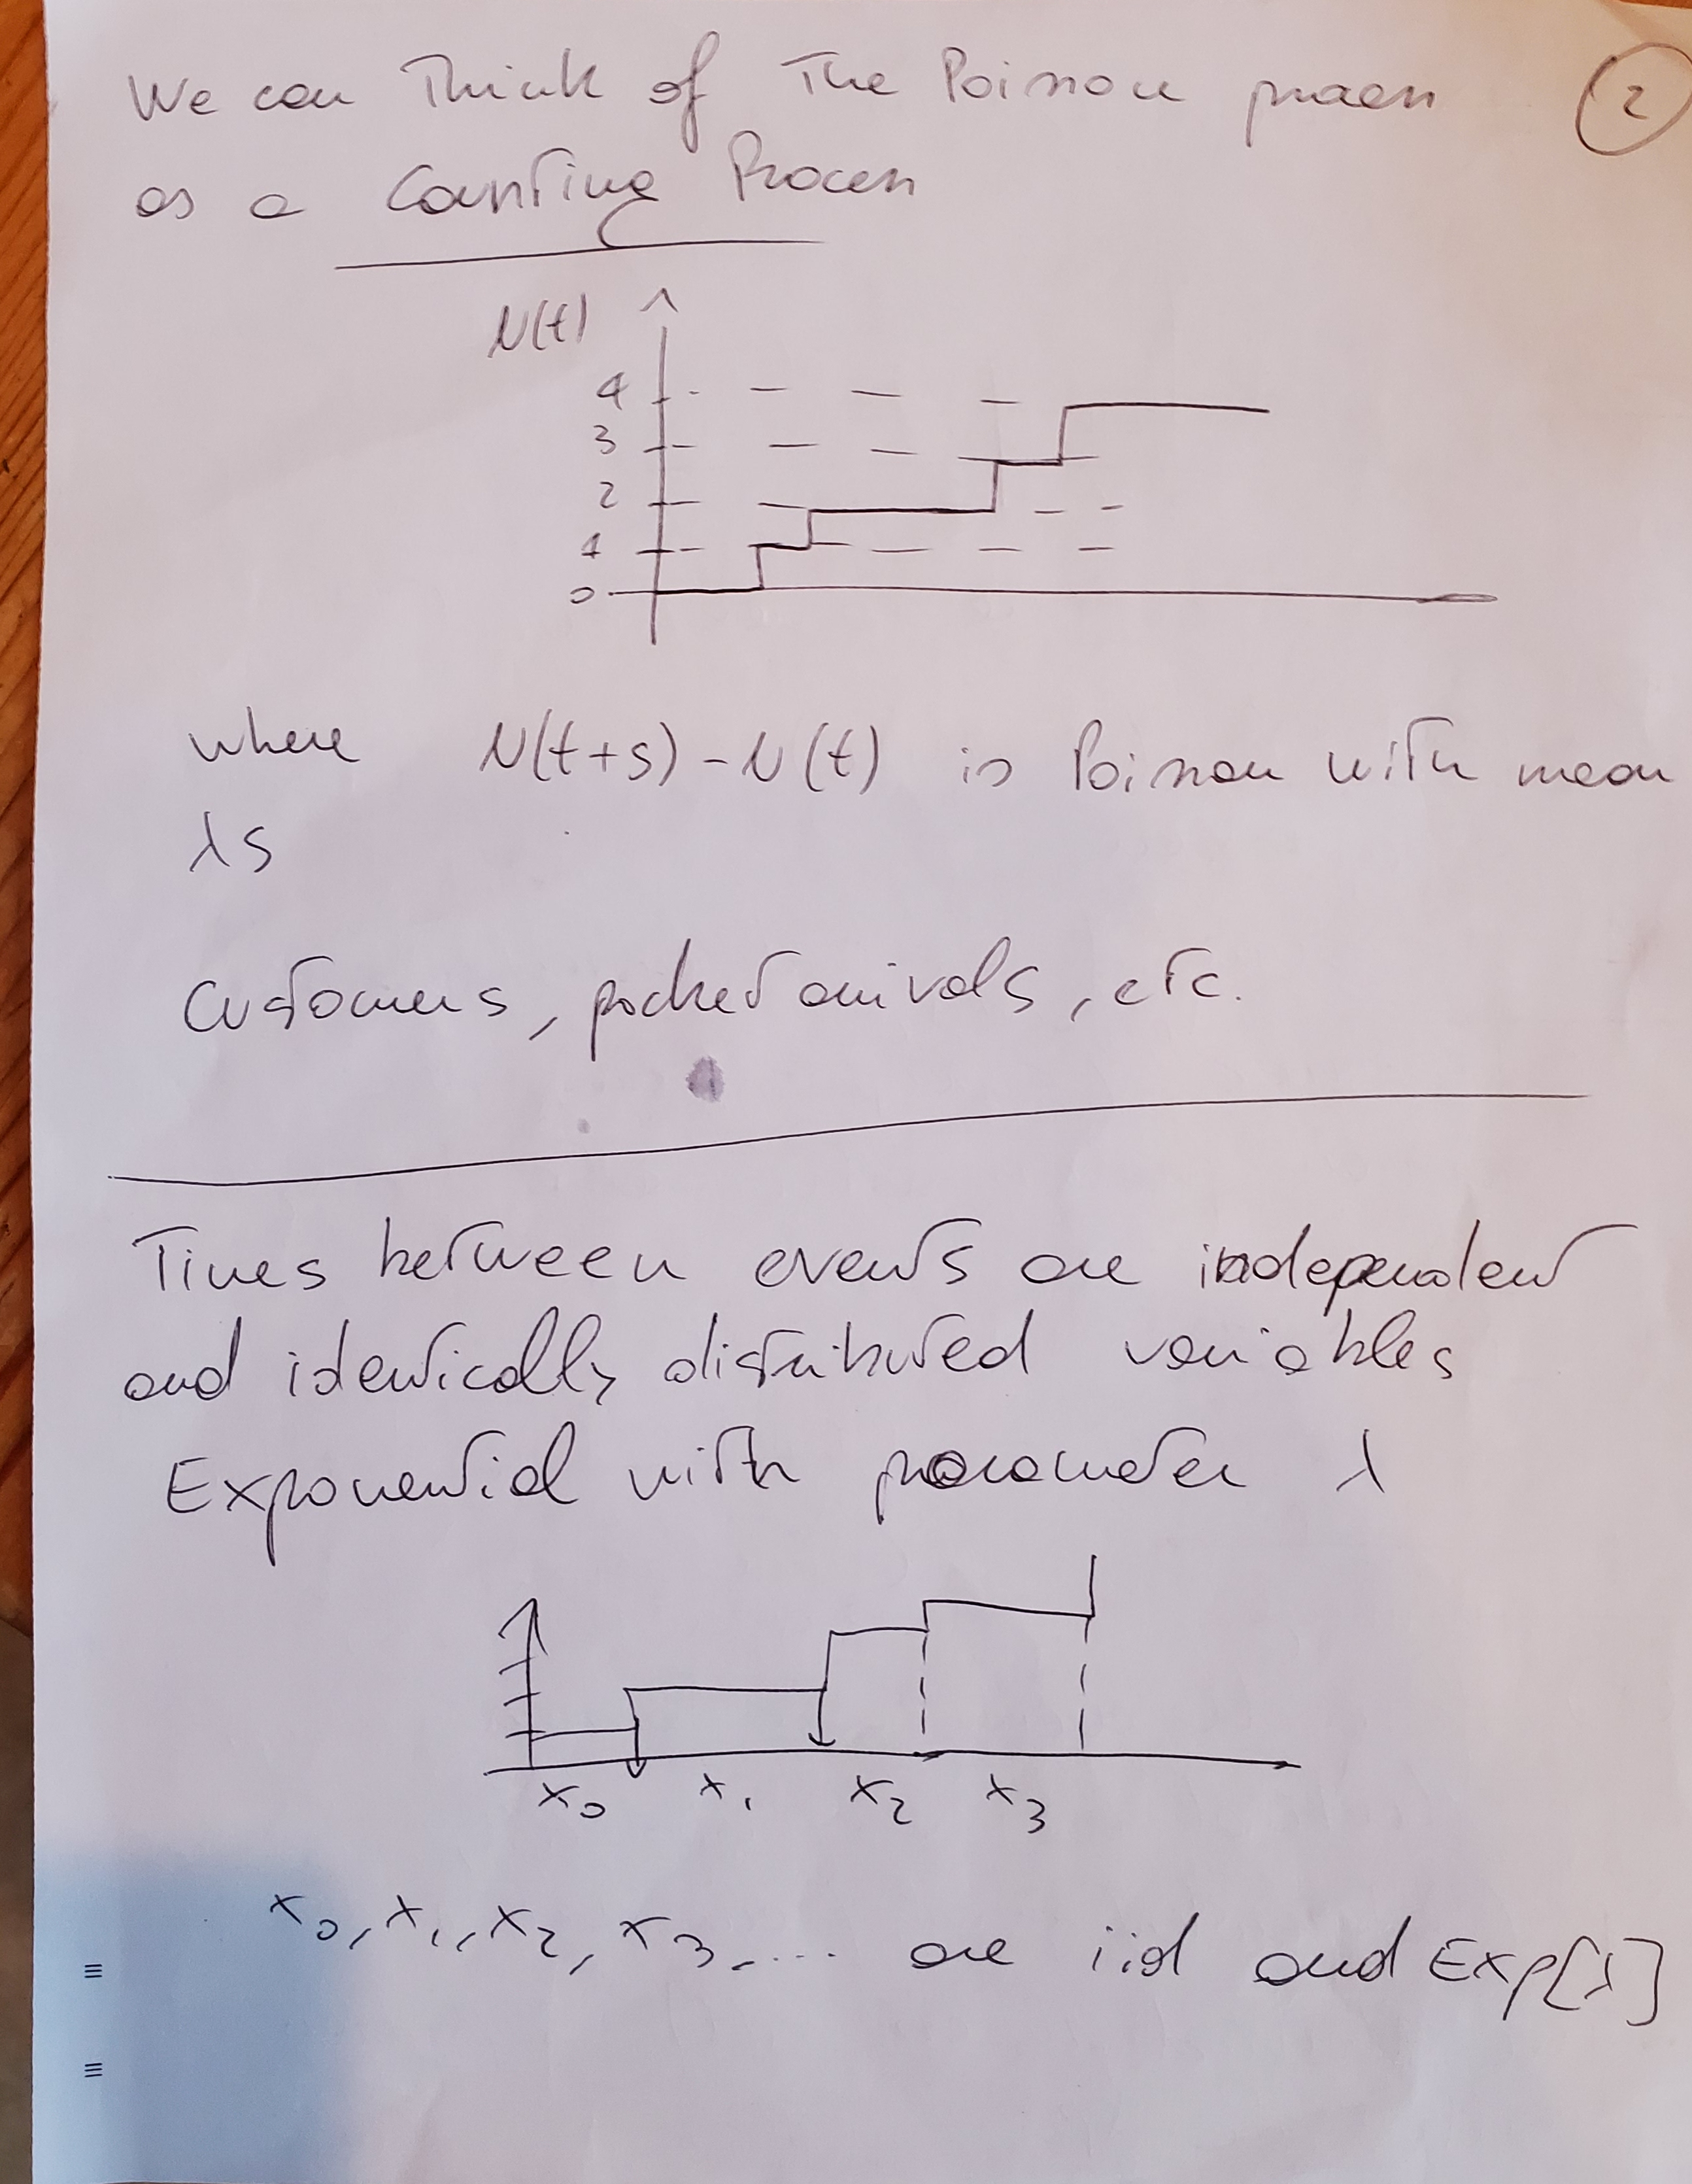 We can Think of The Poisson process
2
as a Counting Process
N(t)
4
3
2
1
0
where N(t+s) - N(t) is Poisson with mean
λs
Customers, packet arrivals, etc.
Times between events are independent
and identically distributed variables
Exponential with parameter λ
x₀ x₁ x₂ x₃
x₀, x₁, x₂, x₃, ... are iid and Exp[λ]